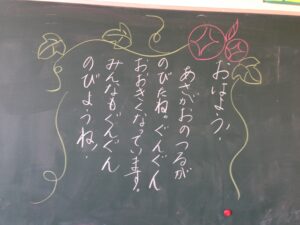 おはよう!
あさがおのつるが
のびたね。ぐんぐん
おおきくなっています。
みんなもぐんぐん
のびようね!